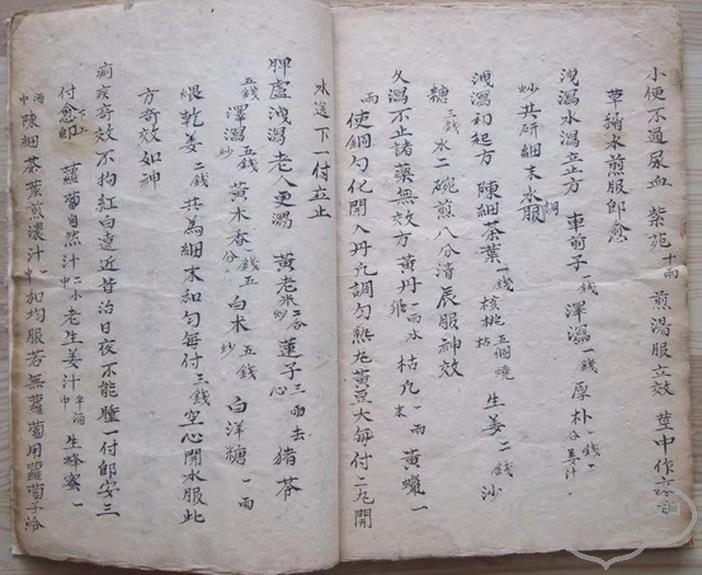 小便不通尿血 紫苑十兩 煎湯服立效 莖中作
草稍水煎服即愈
洩瀉水瀉立止方 車前子一錢 澤瀉一錢 厚朴一錢二分姜汁
炒 共研細末水調服
洩瀉初起方 陳細茶葉一錢 核桃五個燒枯 生姜二錢 沙
糖三錢 水二碗煎八分清晨服神效
久瀉不止諸藥無效方 黃丹一兩水飛 枯凡一兩末 黃蠟一
兩 使銅勺化開入丹凡調勻為丸黃豆大每付二丸開
水送下一付立止
脾虛洩瀉老人更瀉 黃老米二合炒 蓮子三兩去心 豬苓
五錢 澤瀉五錢炒 黃木香一錢五分 白术五錢炒 白洋糖一兩
煨乾姜二錢 共為細末和勻每付三錢空心開水服此
方奇效如神
痢疾奇效不拘紅白遠近皆治日夜不能睡一付即安三
付愈即 蘿蔔自然汁二小酒中 老生姜汁半酒中 生蜂蜜一
酒中 陳細茶葉煎濃汁一中和均服若無蘿蔔用蘿蔔子治